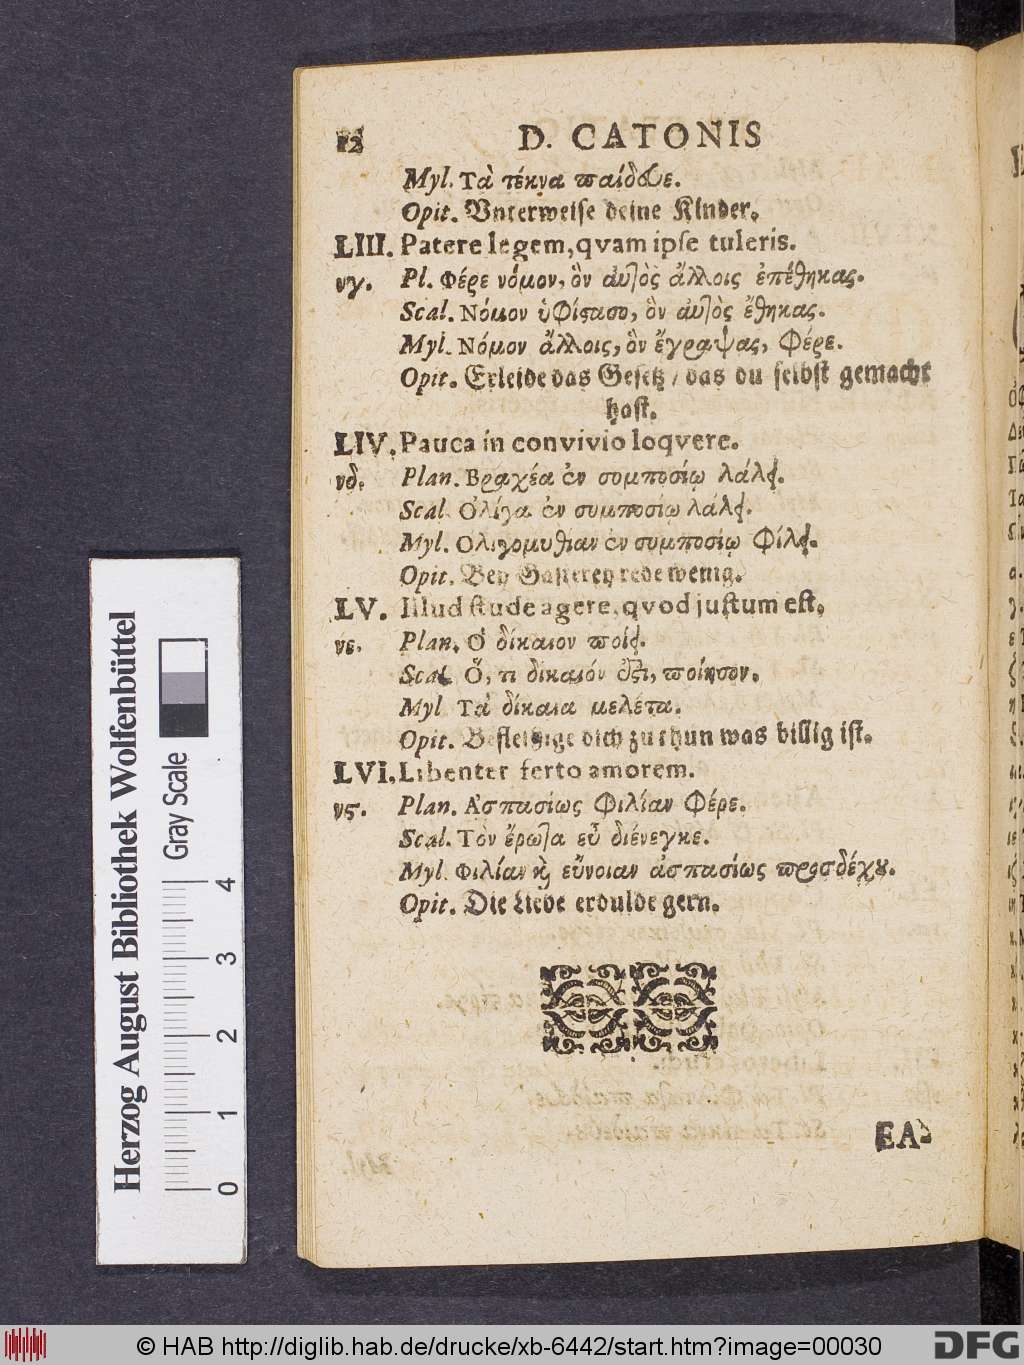 12 D. CATONIS
Myl. Τὰ τέκνα παίδευε.
Opit. Vnterweiſe deine Kinder.
LIII. Patere legem, qvam ipſe tuleris.
νγ. Pl. Φέρε νόμον, ὃν αὐτὸς ἄλλοις ἐπέθηκας.
Scal. Νόμον ὑφίστασο, ὃν αὐτὸς ἔθηκας.
Myl. Νόμον ἄλλοις, ὃν ἔγραψας, φέρε.
Opit. Erleide das Geſetz / das du ſelbſt gemacht
haſt.
LIV. Pauca in convivio loqvere.
νδ. Plan. Βραχέα ἐν συμποσίῳ λάλει.
Scal. Ὀλίγα ἐν συμποσίῳ λάλει.
Myl. Ὀλιγομυθίαν ἐν συμποσίῳ φίλει.
Opit. Bey Gaſterey rede wenig.
LV. Illud ſtude agere, qvod juſtum eſt.
νε. Plan. Ὃ δίκαιον ποίει.
Scal. Ὅ, τι δίκαιόν ἐστι, ποίησον.
Myl. Τὰ δίκαια μελέτα.
Opit. Befleiſſige dich zu thun was billig iſt.
LVI. Libenter ferto amorem.
νς. Plan. Ἀσπασίως φιλίαν φέρε.
Scal. Τὸν ἔρωτα εὖ διένεγκε.
Myl. Φιλίαν καὶ εὔνοιαν ἀσπασίως προσδέχου.
Opit. Die Liebe erdulde gern.
EA-
Herzog August Bibliothek Wolfenbüttel
Gray Scale
0 1 2 3 4
© HAB http://diglib.hab.de/drucke/xb-6442/start.htm?image=00030
DFG